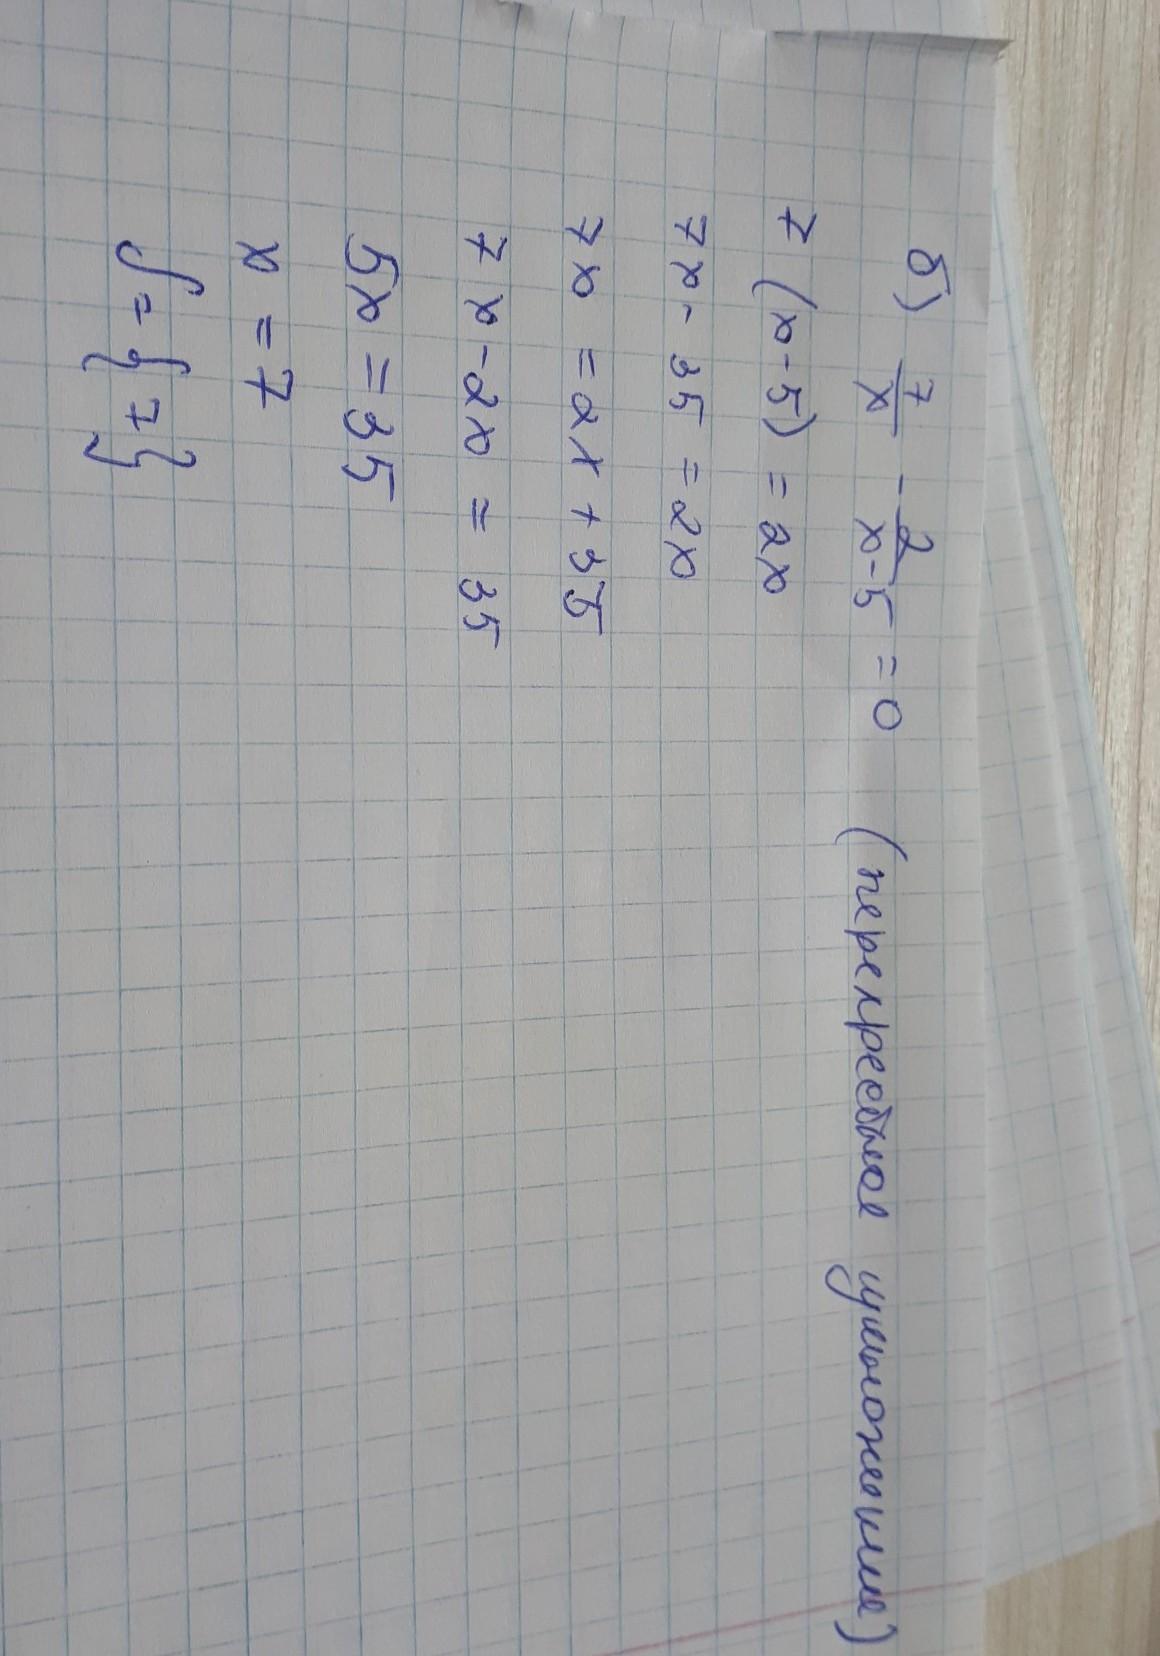 б) 7/x - 2/x-5 = 0 (перекрестное умножение)
7 (x-5) = 2x
7x - 35 = 2x
7x = 2x + 35
7x - 2x = 35
5x = 35
x = 7
S = { 7 }